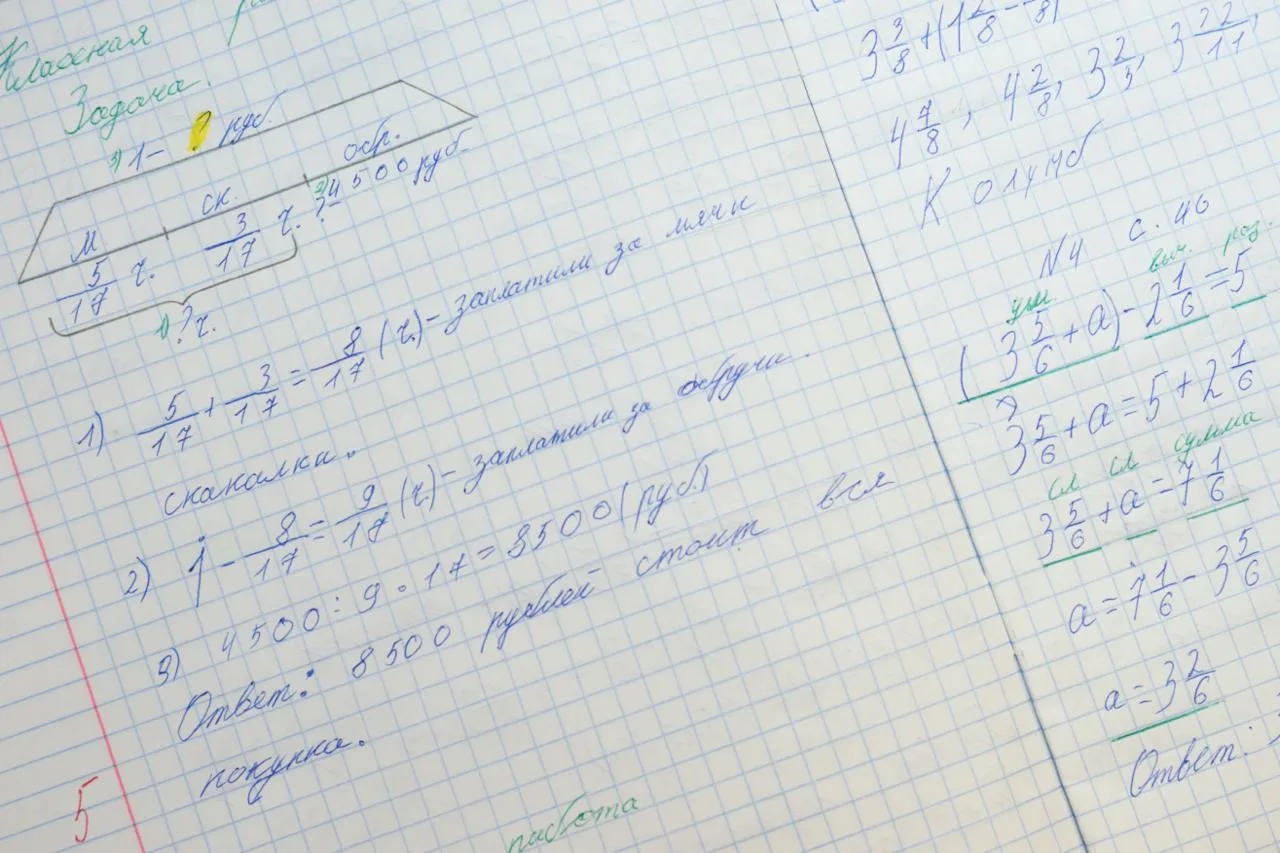 Классная
Задача.
3) 1 – ? руб.
м. ск. обр.
5/17 ч. 3/17 ч. ? 2) 4500 руб.
1) ? ч.
1) 5/17 + 3/17 = 8/17 (ч.) – заплатили за мячи
скакалки.
2) 1 – 8/17 = 9/17 (ч.) – заплатили за обручи.
3) 4500 : 9 · 17 = 8500 (руб.)
Ответ: 8500 рублей стоит вся
покупка.
5
работа
3 3/8 + (1 2/8 –
4 7/8, 4 2/8, 3 2/5,
Колумб
N4 с. 46
ум. выч. раз.
(3 5/6 + а) – 2 1/6 = 5
3 5/6 + а = 5 + 2 1/6
сл сл сумма
3 5/6 + а = 7 1/6
а = 7 1/6 – 3 5/6
а = 3 2/6
Ответ: